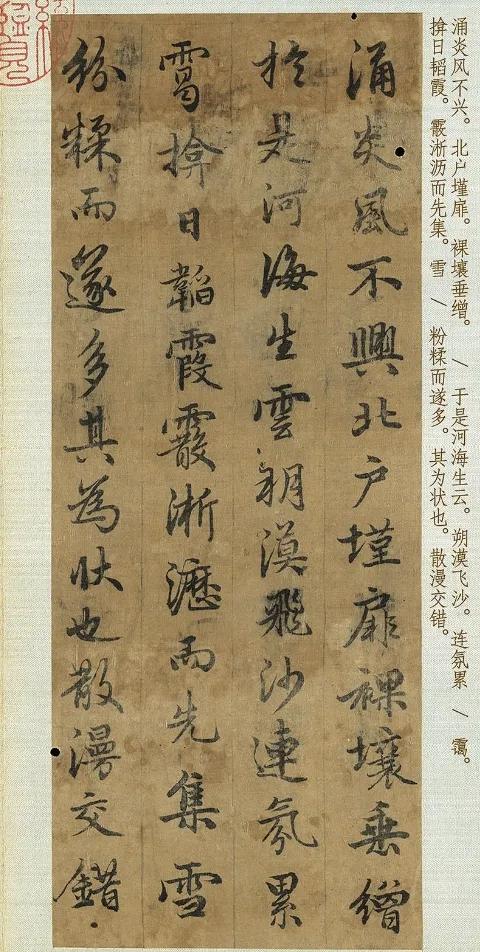 涌炎风不兴。北户墐扉。裸壤垂缯。 / 于是河海生云。朔漠飞沙。连氛累 / 霭。
揜日韬霞。霰淅沥而先集。雪 / 粉糅而遂多。其为状也。散漫交错。
涌炎風不興北户墐扉裸壤垂繒
於是河海生雲朔漠飛沙連氛累
靄揜日韜霞霰淅瀝而先集雪
紛糅而遂多其為狀也散漫交錯